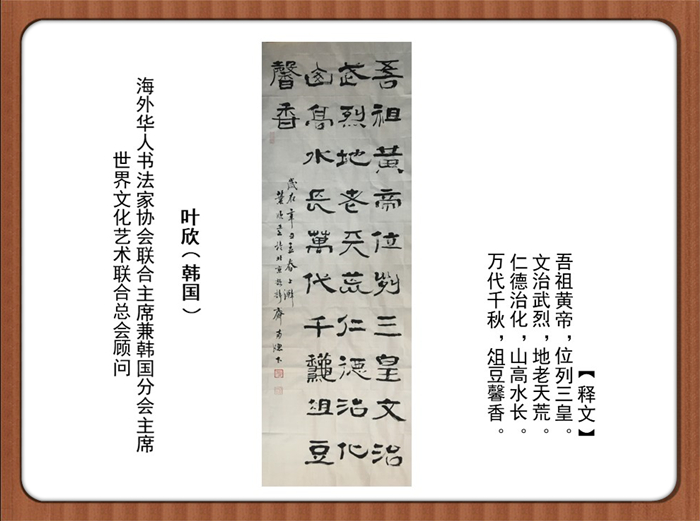 【释文】
吾祖黄帝，位列三皇。
文治武烈，地老天荒。
仁德治化，山高水长。
万代千秋，俎豆馨香。
吾祖黄帝位列三皇文治
武烈地老天荒仁德治化
山高水長萬代千龝俎豆
馨香
歲在辛丑立春
叶欣（韩国）
海外华人书法家协会联合主席兼韩国分会主席
世界文化艺术联合总会顾问